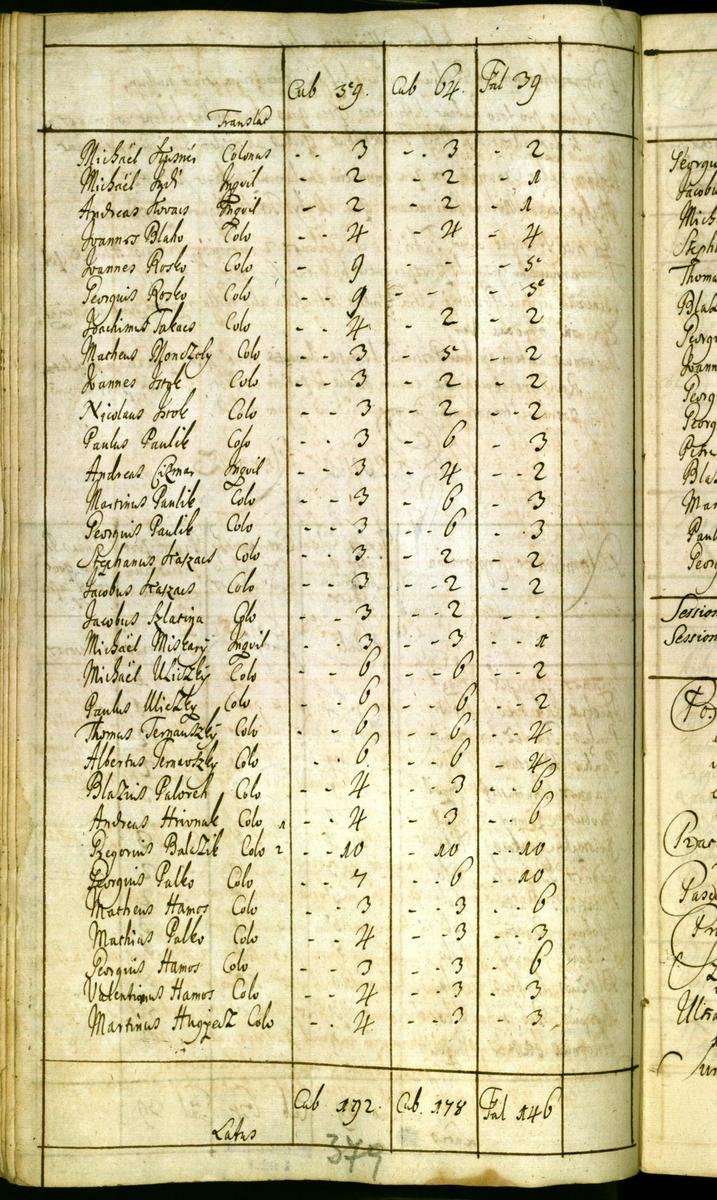 Cub 59. Cub 64. Fal 39
Translat
Michaël Husner Colonus - - 3 - - 3 - - 2
Michaël Jndi Inqvil - - 2 - - 2 - - 1
Andreas Kovacs Inqvil - - 2 - - 2 - - 1
Joannes Blaho Colo - - 4 - - 4 - 4
Joannes Rosko Colo - - 9 - - - - 5
Georgius Rosko Colo - - 9 - - - - 5
Joachimus Takacs Colo - - 4 - 2 - - 2
Matheus Monczoly Colo - - 3 - 5 - - 2
Joannes Jstok Colo - - 3 - 2 - - 2
Nicolaus Jstok Colo - - 3 - 2 - - 2
Paulus Paulik Colo - - 3 - 6 - - 3
Andreas Cizmar Inqvil - - 3 - 4 - - 2
Martinus Paulik Colo - - 3 - - 6 - - 3
Georgius Paulik Colo - - 3 - - 6 - - 3
Stephanus Kaszacs Colo - - 3 - - 2 - - 2
Jacobus Kaszacs Colo - - 3 - - 2 - - 2
Jacobus Szlatina Colo - - 3 - - 2 - - -
Michaël Miskary Inqvil - - 3 - - 3 - - 1
Michaël Uliczky Colo - - 6 - - 6 - - 2
Paulus Uliczky Colo - - 6 - - 6 - - 2
Thomas Ternauszky Colo - - 6 - - 6 - - 4
Albertus Ternovszky Colo - - 6 - - 6 - - 4
Blazius Paloreh Colo - - 4 - - 3 - - 6
Andreas Hrivnak Colo 1 - - 4 - - 3 - - 6
Gregorius Balazik Colo 2 - - 10 - - 10 - - 10
Georgius Palko Colo - - 7 - - 6 - - 10
Matheus Hamos Colo - - 3 - - 3 - - 6
Mathias Palko Colo - - 4 - - 3 - - 3
Georgius Hamos Colo - - 3 - - 3 - - 6
Valentinus Hamos Colo - - 4 - - 3 - - 3
Martinus Hugyecz Colo - - 4 - - 3 - - 3
Cub 192. Cub. 178 Fal 146
Latus
379
Session
Session